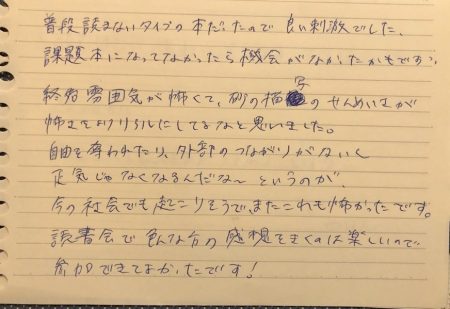 普段読まないタイプの本だったので良い刺激でした。
課題本になってなかったら機会がなかったかもです。
終始雰囲気が怖くて、砂の描写のせんめいさが
怖さをよりリアルにしてるなと思いました。
自由を奪われたり、外部のつながりがないと
正気じゃなくなるんだな〜というのが、
今の社会でも起こりそうで、またこれも怖かったです。
読書会で色んな方の感想をきくのは楽しいので
参加できてよかったです!